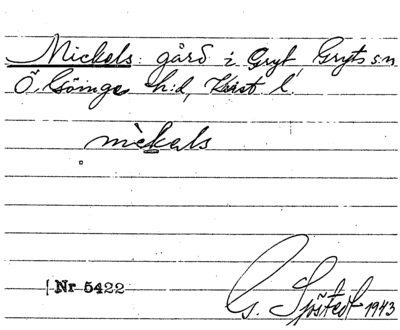 Mickels: gård i Gryt, Gryts sn
Ö. Göinge h:d, Krist l.
mìckels
Nr 5422
G. Sjöstedt 1943